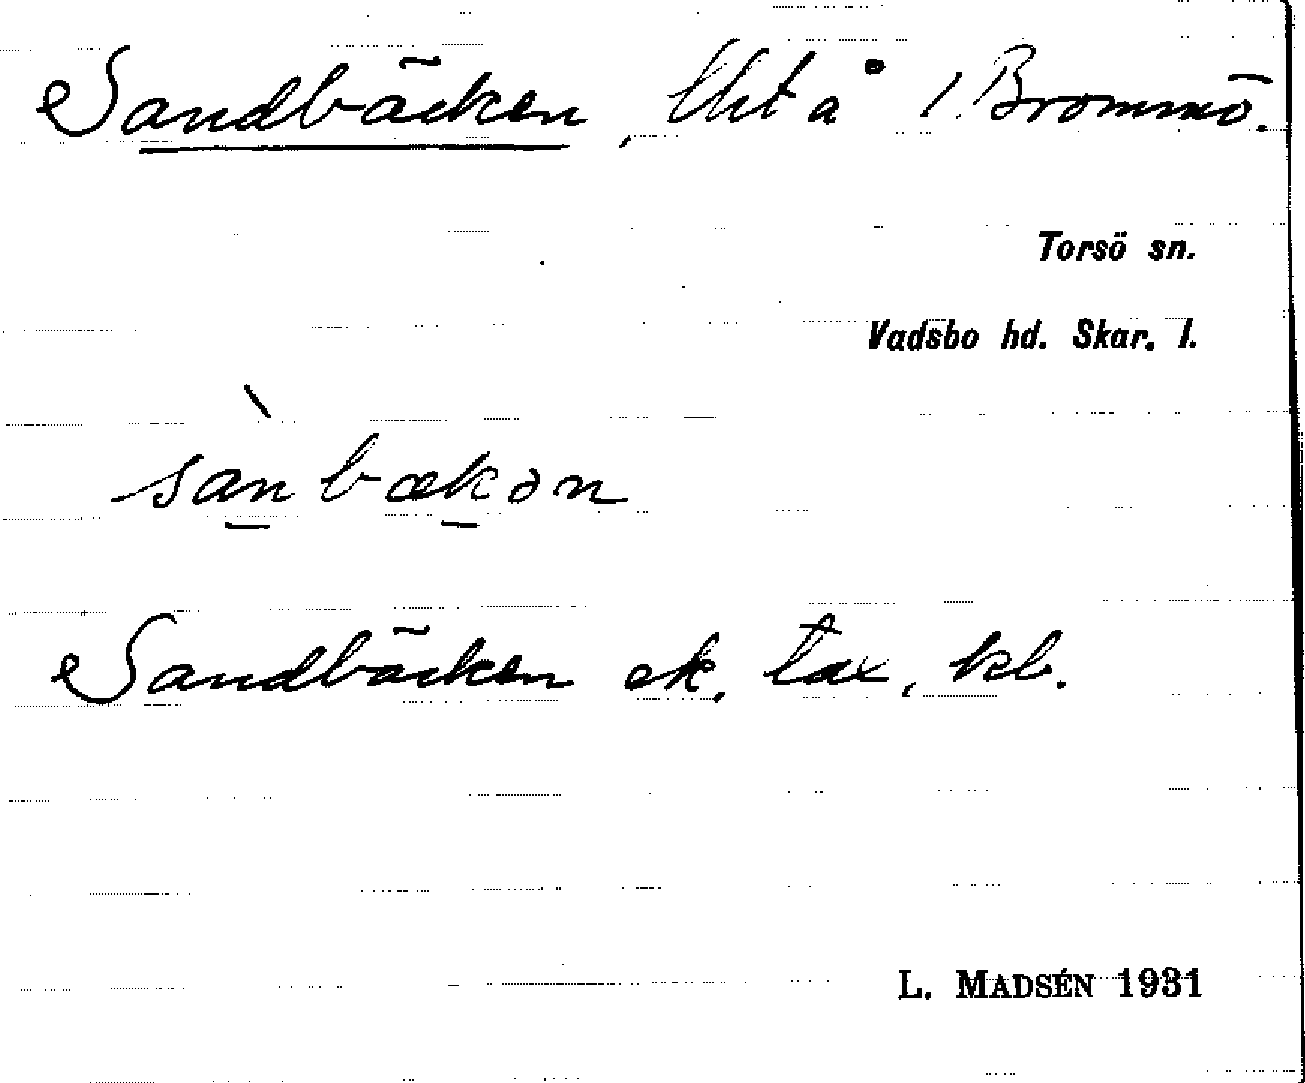 Sandbäcken, lht å 1. Brommö.
Torsö sn.
Vadsbo hd. Skar. l.
sànbækən
Sandbäcken ek. tax, kb.
L. MADSÉN 1931